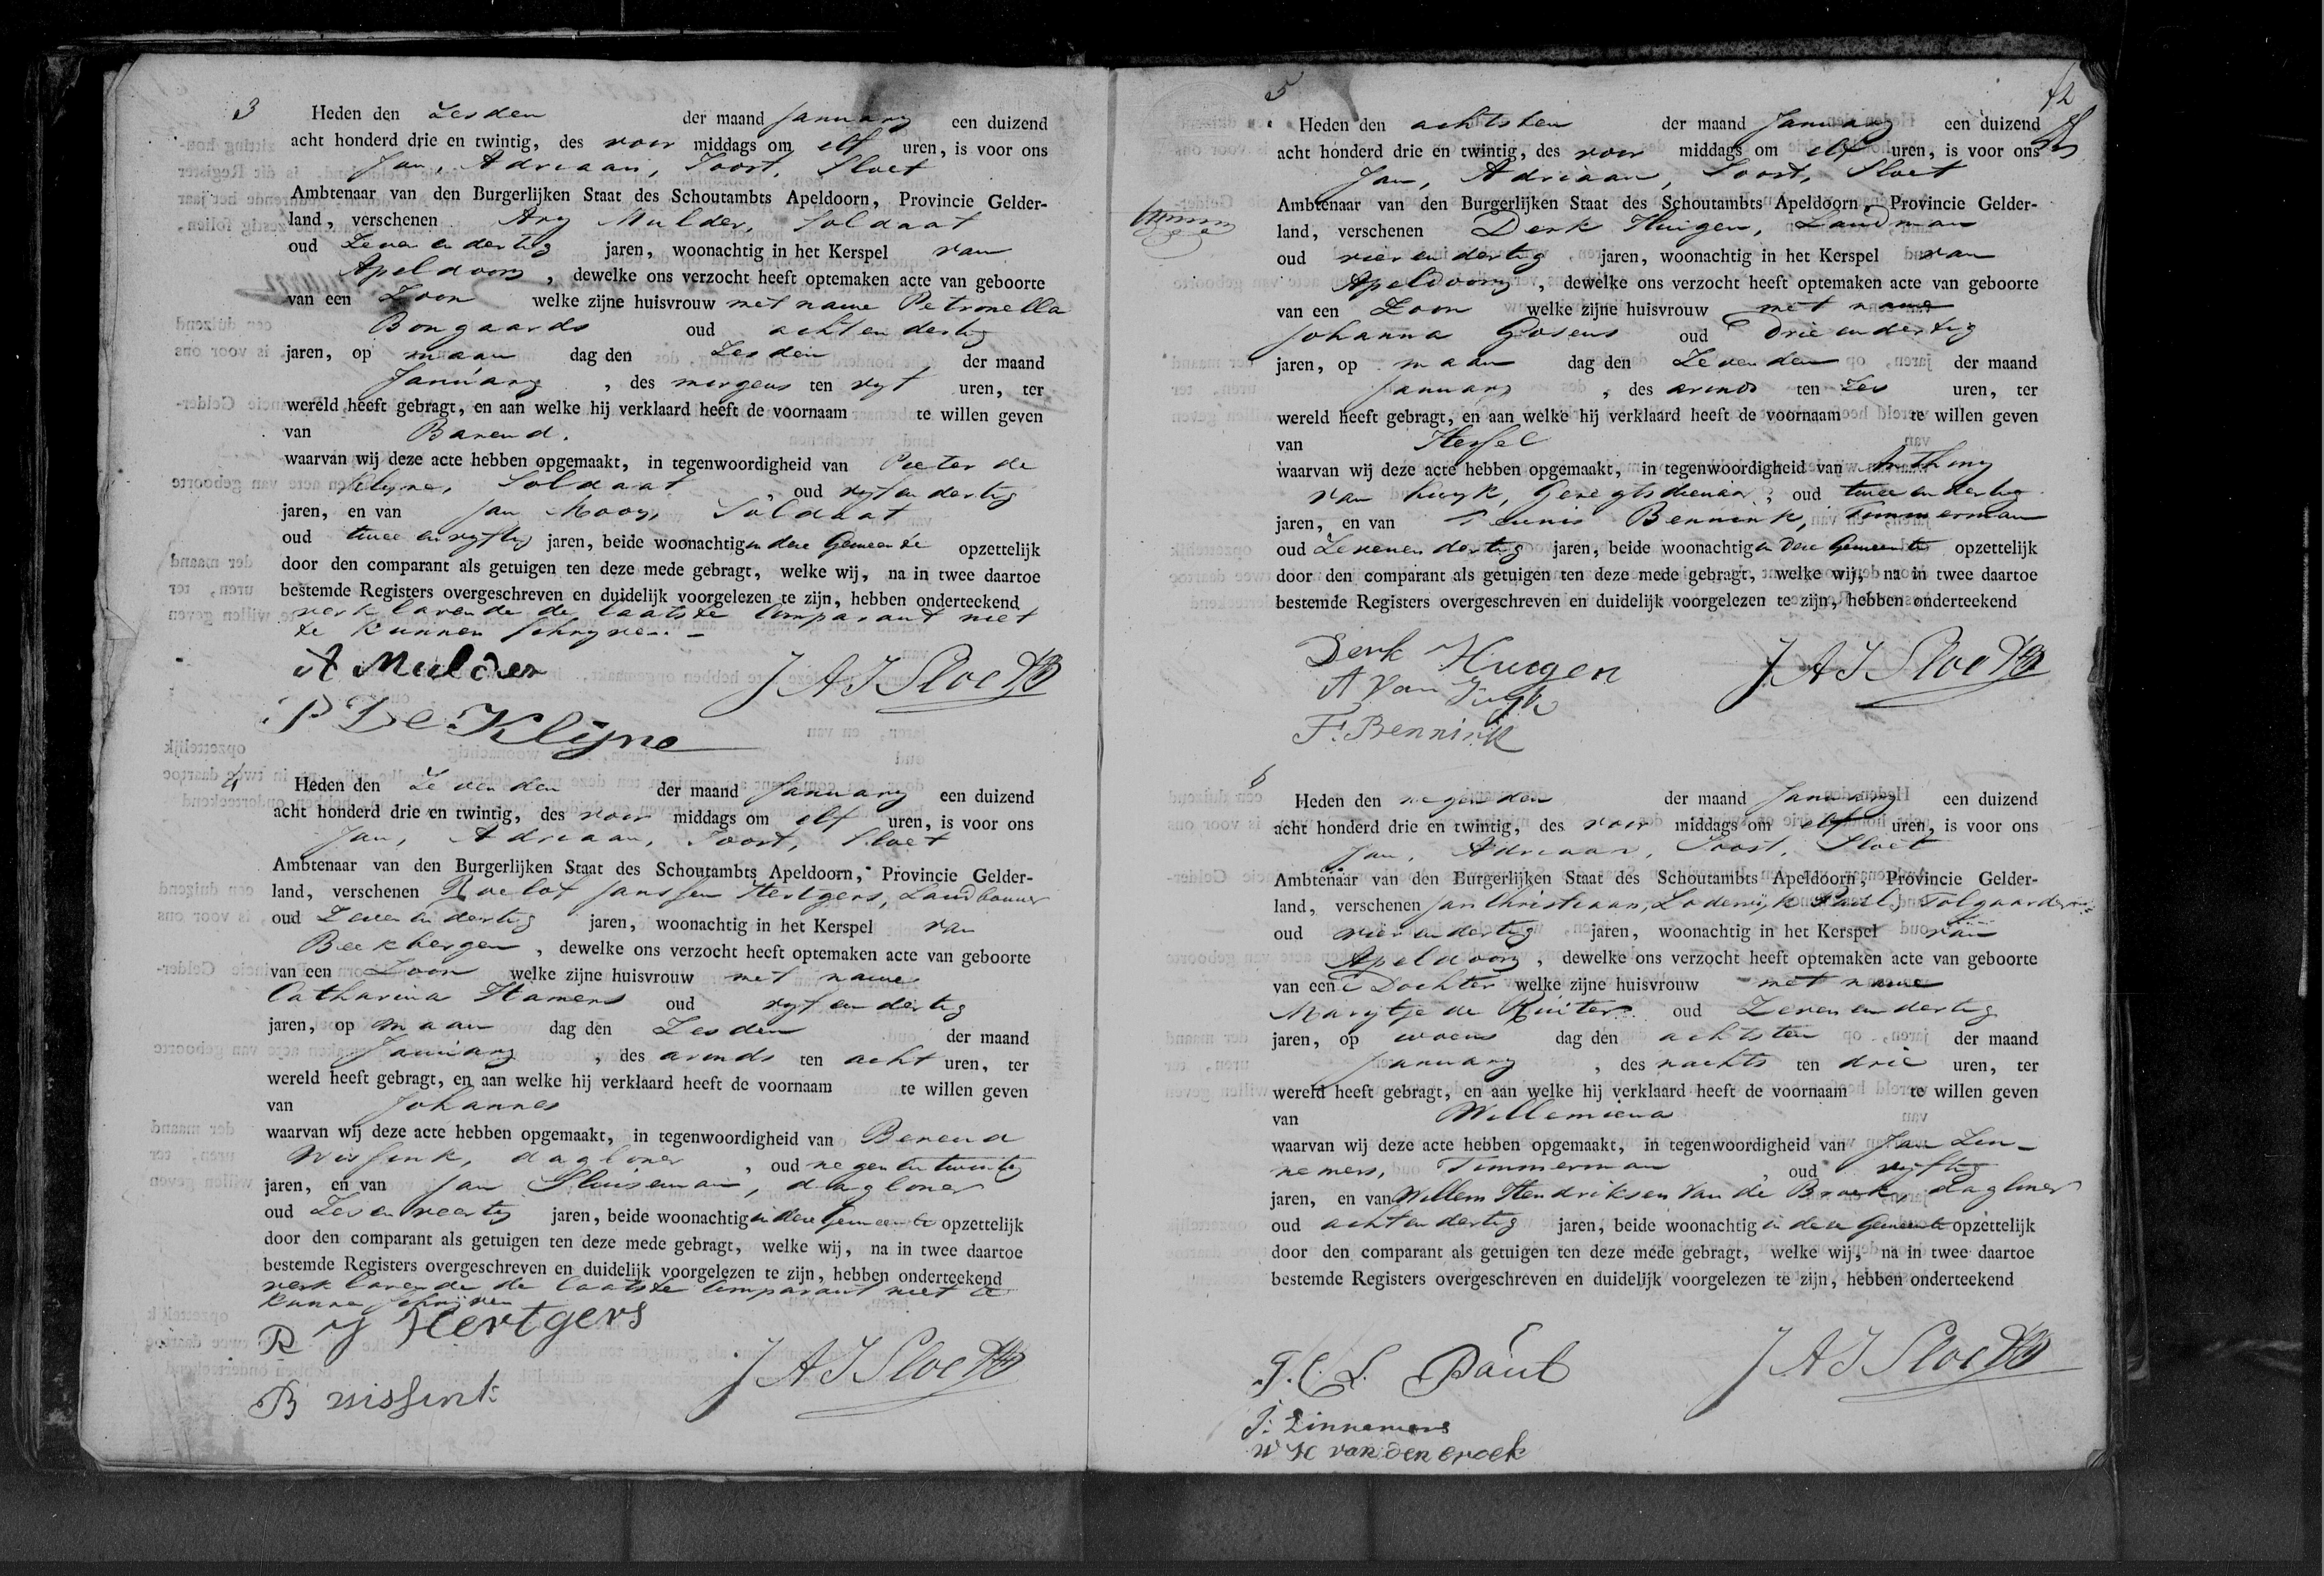 3
Heden den Zesden der maand January een duizend
acht honderd drie en twintig, des voor middags om elf uren, is voor ons
Jan, Adriaan, Joost, Sloet
Ambtenaar van den Burgerlijken Staat des Schoutambts Apeldoorn, Provincie Gelder-
land, verschenen Ary Mulder, Soldaat
oud Zeven en dertig jaren, woonachtig in het Kerspel van
Apeldoorn, dewelke ons verzocht heeft optemaken acte van geboorte
van een Zoon welke zijne huisvrouw met name Petronella
Bongaards oud acht en dertig
jaren, op maan dag den Zesden der maand
January, des morgens ten vyf uren, ter
wereld heeft gebragt, en aan welke hij verklaard heeft de voornaam te willen geven
van Barend.
waarvan wij deze acte hebben opgemaakt, in tegenwoordigheid van Pieter de
Klyne, Soldaat, oud vyf en dertig
jaren, en van Jan Mooy, Soldaat
oud twee en vyftig jaren, beide woonachtig in deze Gemeente opzettelijk
door den comparant als getuigen ten deze mede gebragt, welke wij, na in twee daartoe
bestemde Registers overgeschreven en duidelijk voorgelezen te zijn, hebben onderteekend
verklarende de laatste Comparant niet
te kunnen schryven.
A Mulder
J A J Sloet
P De Klijne
4
Heden den Zevenden der maand January een duizend
acht honderd drie en twintig, des voor middags om elf uren, is voor ons
Jan, Adriaan, Joost, Sloet
Ambtenaar van den Burgerlijken Staat des Schoutambts Apeldoorn, Provincie Gelder-
land, verschenen Roelof Janssen Hertgers, Landbouwer
oud Zeven en dertig jaren, woonachtig in het Kerspel van
Beekbergen, dewelke ons verzocht heeft optemaken acte van geboorte
van een Zoon welke zijne huisvrouw met name
Catharina Hamers oud vyf en dertig
jaren, op maan dag den Zesden der maand
January, des avonds ten acht uren, ter
wereld heeft gebragt, en aan welke hij verklaard heeft de voornaam te willen geven
van Johannes
waarvan wij deze acte hebben opgemaakt, in tegenwoordigheid van Berend
Wissink, dagloner, oud negen en twintig
jaren, en van Jan Sluiseman, dagloner
oud Zes en veertig jaren, beide woonachtig in deze Gemeente opzettelijk
door den comparant als getuigen ten deze mede gebragt, welke wij, na in twee daartoe
bestemde Registers overgeschreven en duidelijk voorgelezen te zijn, hebben onderteekend
verklarende de laatste Comparant niet te
kunnen schrijven
R J Hertgers
J A J Sloet
B wissink
5
12
Heden den achtsten der maand January een duizend
acht honderd drie en twintig, des voor middags om elf uren, is voor ons
Jan, Adriaan, Joost, Sloet
Ambtenaar van den Burgerlijken Staat des Schoutambts Apeldoorn, Provincie Gelder-
land, verschenen Derk Huigen, Landman
oud vier en dertig jaren, woonachtig in het Kerspel van
Apeldoorn, dewelke ons verzocht heeft optemaken acte van geboorte
van een Zoon welke zijne huisvrouw met name
Johanna Gosens oud drie en dertig
jaren, op maan dag den Zevenden der maand
January, des avonds ten Zes uren, ter
wereld heeft gebragt, en aan welke hij verklaard heeft de voornaam te willen geven
van Hessel
waarvan wij deze acte hebben opgemaakt, in tegenwoordigheid van Anthony
van Guyk, Geregtsdienaar, oud twee en dertig
jaren, en van Teunis Bennink, Timmerman
oud Zeven en dertig jaren, beide woonachtig in deze Gemeente opzettelijk
door den comparant als getuigen ten deze mede gebragt, welke wij, na in twee daartoe
bestemde Registers overgeschreven en duidelijk voorgelezen te zijn, hebben onderteekend
Derk Huigen
J A J Sloet
A van Guyk
T. Bennink
6
Heden den negenden der maand January een duizend
acht honderd drie en twintig, des voor middags om elf uren, is voor ons
Jan, Adriaan, Joost, Sloet
Ambtenaar van den Burgerlijken Staat des Schoutambts Apeldoorn, Provincie Gelder-
land, verschenen Jan Christiaan, Lodewijk Paul, Tolgaarder
oud vier en dertig jaren, woonachtig in het Kerspel van
Apeldoorn, dewelke ons verzocht heeft optemaken acte van geboorte
van een Dochter welke zijne huisvrouw met name
Marytje de Ruiter oud Zeven en dertig
jaren, op woens dag den achtsten der maand
January, des nachts ten drie uren, ter
wereld heeft gebragt, en aan welke hij verklaard heeft de voornaam te willen geven
van Willemiena
waarvan wij deze acte hebben opgemaakt, in tegenwoordigheid van Jan Lin-
nemers, Timmerman, oud vyftig
jaren, en van Willem Hendriksen van de Broek, dagloner
oud acht en dertig jaren, beide woonachtig in deze Gemeente opzettelijk
door den comparant als getuigen ten deze mede gebragt, welke wij, na in twee daartoe
bestemde Registers overgeschreven en duidelijk voorgelezen te zijn, hebben onderteekend
J. C. L. Paul
J A J Sloet
J: Linnemers
W H van den broek